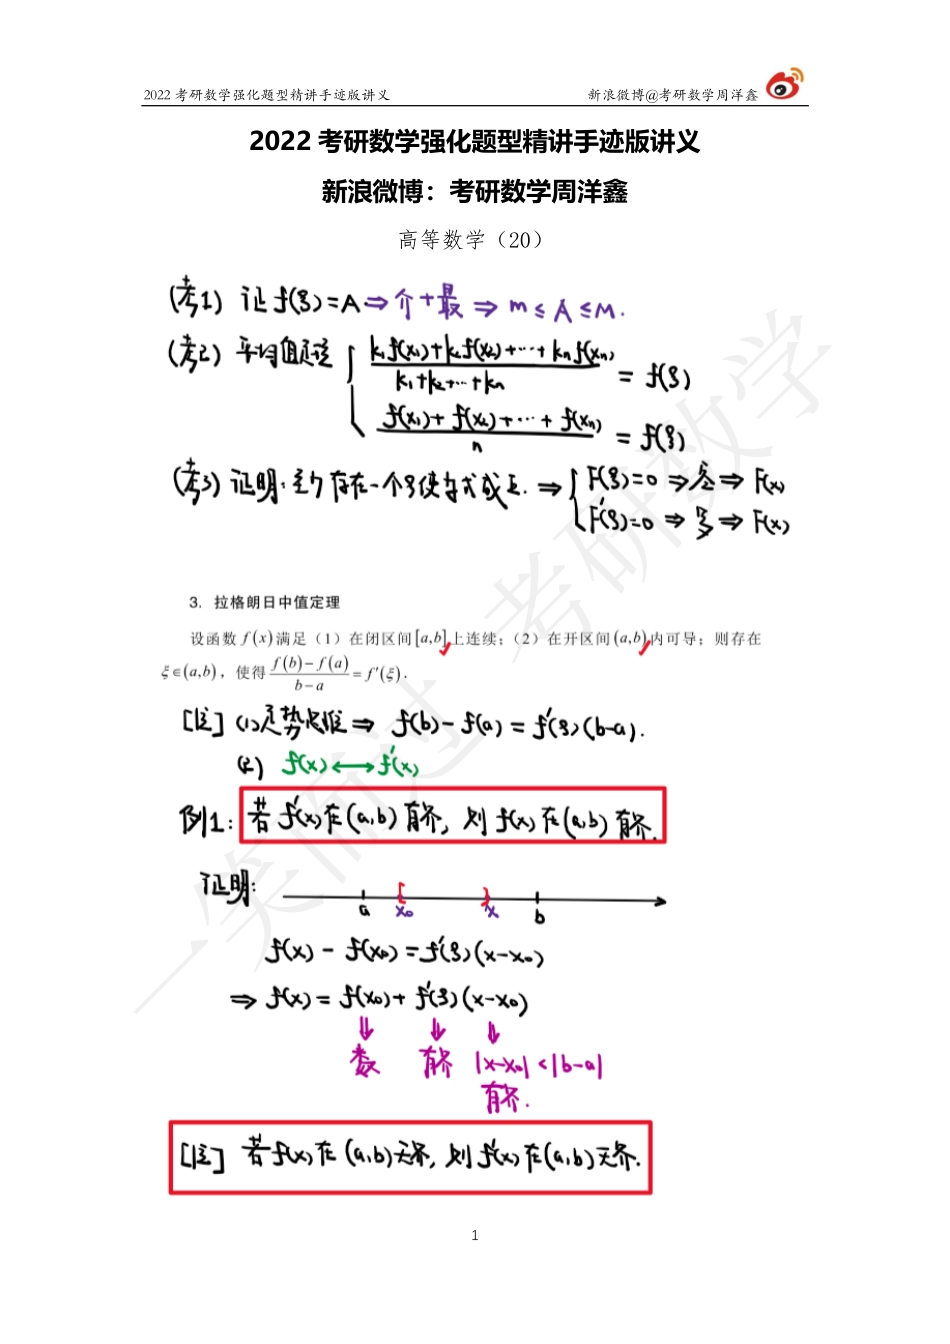 2022 考研数学强化题型精讲手迹版讲义 新浪微博@考研数学周洋鑫
2022 考研数学强化题型精讲手迹版讲义
新浪微博：考研数学周洋鑫
高等数学（20）
(考1) 证 f(ξ)=A ⇒ 介+最 ⇒ m≤A≤M.
(考2) 平均值定理 { (k₁f(x₁)+k₂f(x₂)+⋯+knf(xn))/(k₁+k₂+⋯+kn) = f(ξ)
(f(x₁)+f(x₂)+⋯+f(xn))/n = f(ξ)
(考3) 证明: 至少存在一个ξ使等式成立. ⇒ { F(ξ)=0 ⇒ 零 ⇒ F(x)
F'(ξ)=0 ⇒ 罗 ⇒ F(x)
3. 拉格朗日中值定理
设函数 f(x) 满足（1）在闭区间 [a,b] 上连续；（2）在开区间 (a,b) 内可导；则存在
ξ∈(a,b)，使得 (f(b)−f(a))/(b−a) = f'(ξ).
[注] (1) 定势思维 ⇒ f(b)-f(a)=f'(ξ)(b-a).
(2) f(x) ⟷ f'(x)
例1: 若f'(x)在(a,b)有界, 则f(x)在(a,b)有界.
证明:
a x₀ x b
f(x)-f(x₀)=f'(ξ)(x-x₀)
⇒ f(x)=f(x₀)+f'(ξ)(x-x₀)
⇓ ⇓ ⇓
数 有界 |x-x₀|<|b-a|
有界.
[注] 若f(x)在(a,b)无界, 则f'(x)在(a,b)无界.
一笑而过 考研数学
1